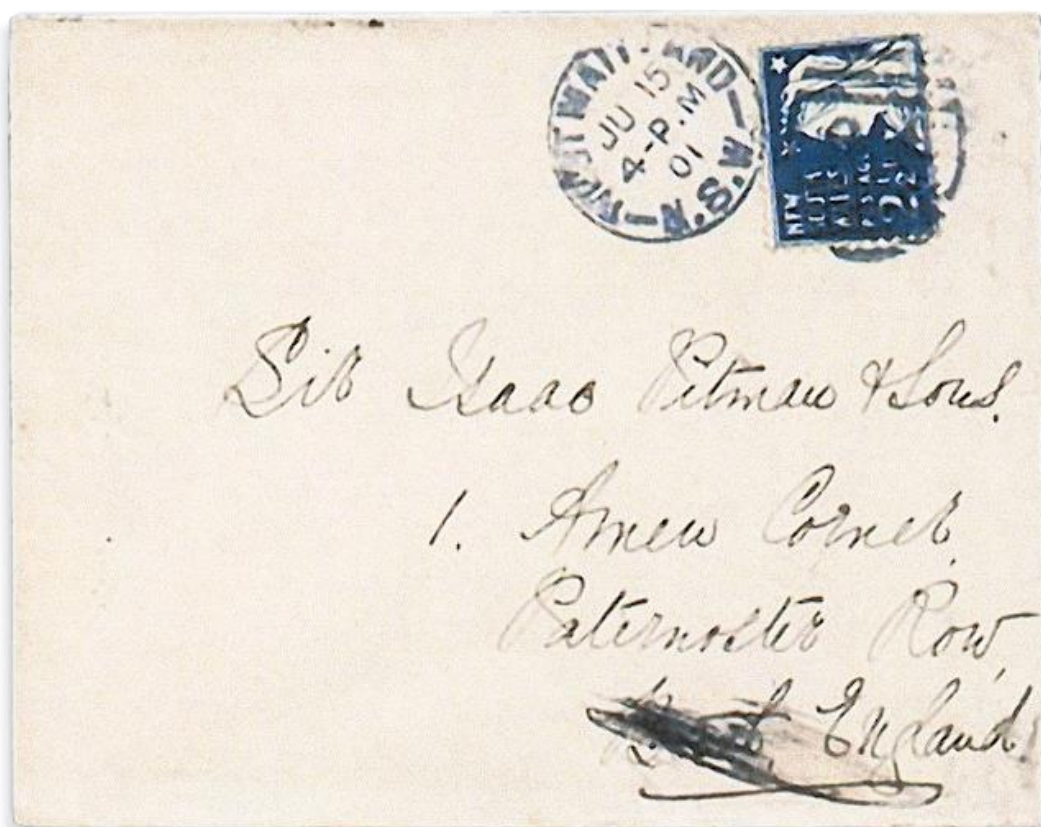 WEST MAITLAND
JU 15
4-P.M
01
N.S.W.
NEW
Sir Isaac Pitman & Sons.
1. Amen Corner,
Paternoster Row,
England